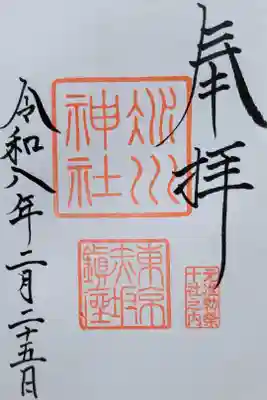 奉拝
氷川神社
元准勅祭
十社之内
東京赤坂鎮座
令和八年二月二十五日